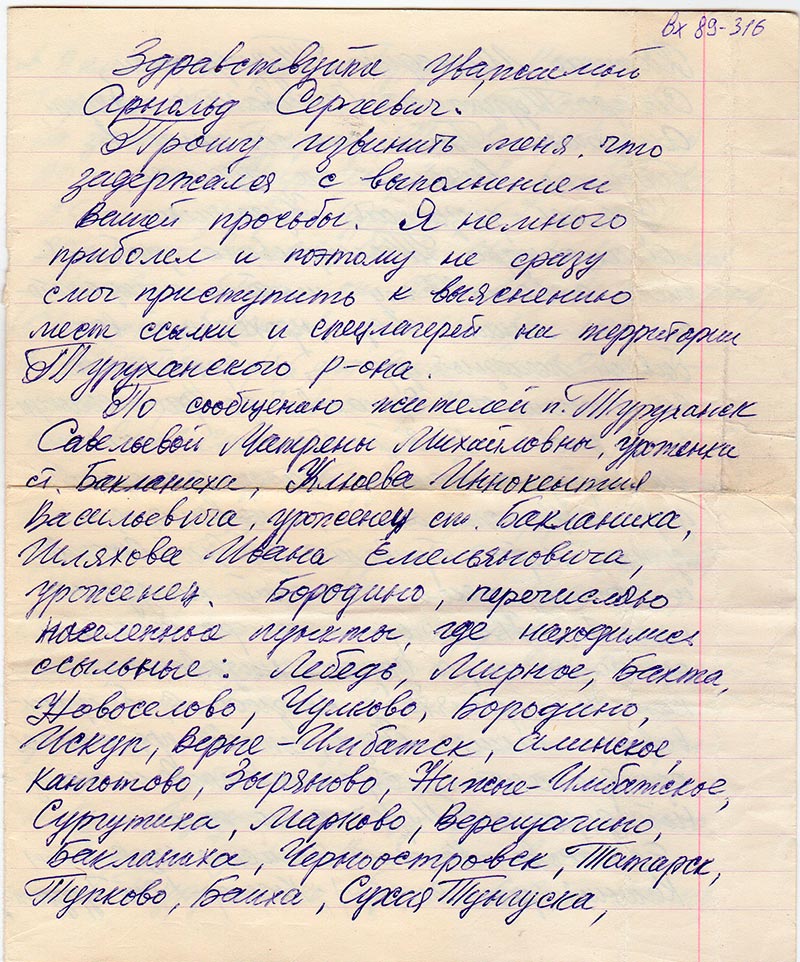 Вх 89-316
Здравствуйте уважаемый
Арнольд Сергеевич.
Прошу извинить меня, что
задержался с выполнением
Вашей просьбы. Я немного
приболел и поэтому не сразу
смог приступить к выяснению
мест ссылки и спецлагерей на территории
Туруханского р-она.
По сообщению жителей п. Туруханск
Савельевой Матрены Михайловны, уроженка
ст. Бакланиха, Клюева Иннокентия
Васильевича, уроженец ст. Бакланиха,
Шляхова Ивана Емельяновича,
уроженец. Бородино, перечисляю
населенные пункты, где находились
ссыльные: Лебедь, Мирное, Бахта,
Новоселово, Чулково, Бородино,
Искуп, Верхе-Имбатск, Алинское,
Канготово, Зыряново, Нижне-Имбатское,
Сургутиха, Марково, Верещагино,
Бакланиха, Черноостровск, Татарск,
Тупково, Баиха, Сухая Тунгуска,